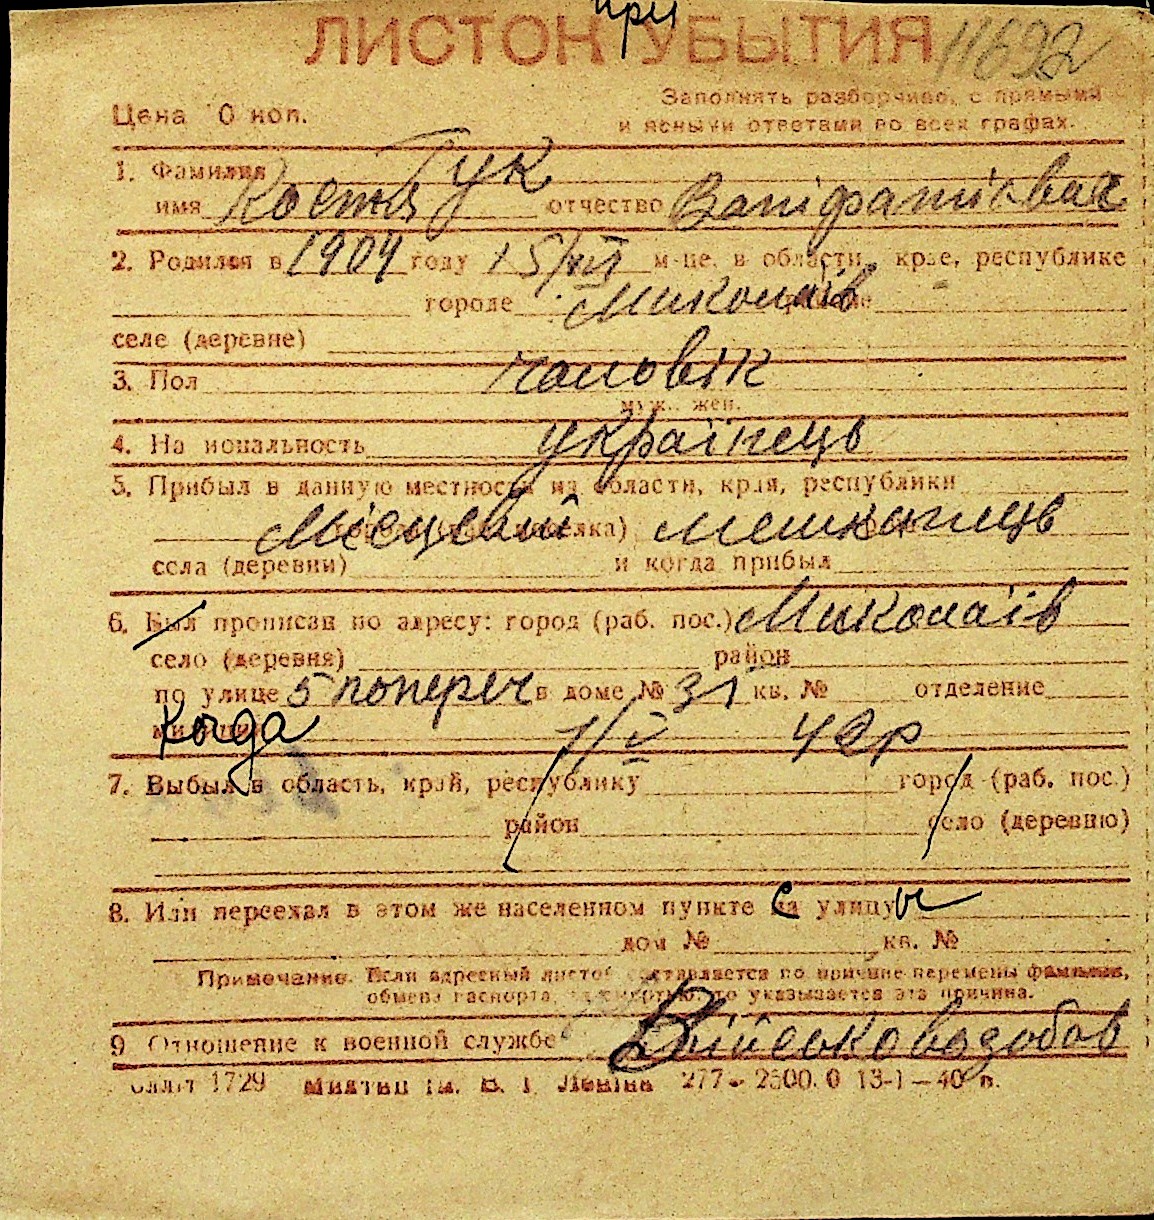 при
ЛИСТОК УБЫТИЯ 11692
Цена 0 коп.
Заполнять разборчиво, с прямыми
и ясными ответами во всех графах.
1. Фамилия Гук
имя Костя отчество
2. Родился в 1904 году 15/VII м-це, в области, крае, республике
городе Миколаїв
селе (деревне)
3. Пол чоловік
муж., жен.
4. На иональность українець
5. Прибыл в данную местность из области, края, республики
Місцевий мешканець
села (деревни) и когда прибыл
6. Был прописан по адресу: город (раб. пос.) Миколаїв
село (деревня) район
по улице 5 попереч в доме № 31 кв. № отделение
Когда 1/V 42р
7. Выбыл в область, край, республику город (раб. пос.)
район село (деревню)
8. Или переехал в этом же населенном пункте с улицы
дом № кв. №
Примечание. Если адресный листок составляется по причине перемены фамилии,
обмена паспорта, за смертью, то указывается эта причина.
9 Отношение к военной службе Військовозобов
1729 277 - 2500. 0 13-1-40 в.